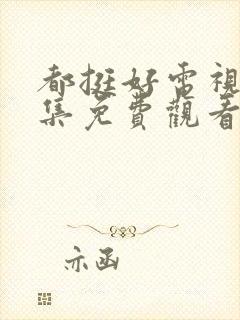 都挺好电視
集免費觀看
示函